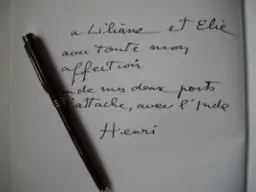 a Liliane et Elie
avec toute mon
affection
de mes deux ports
d'attache, avec l'Inde
Henri